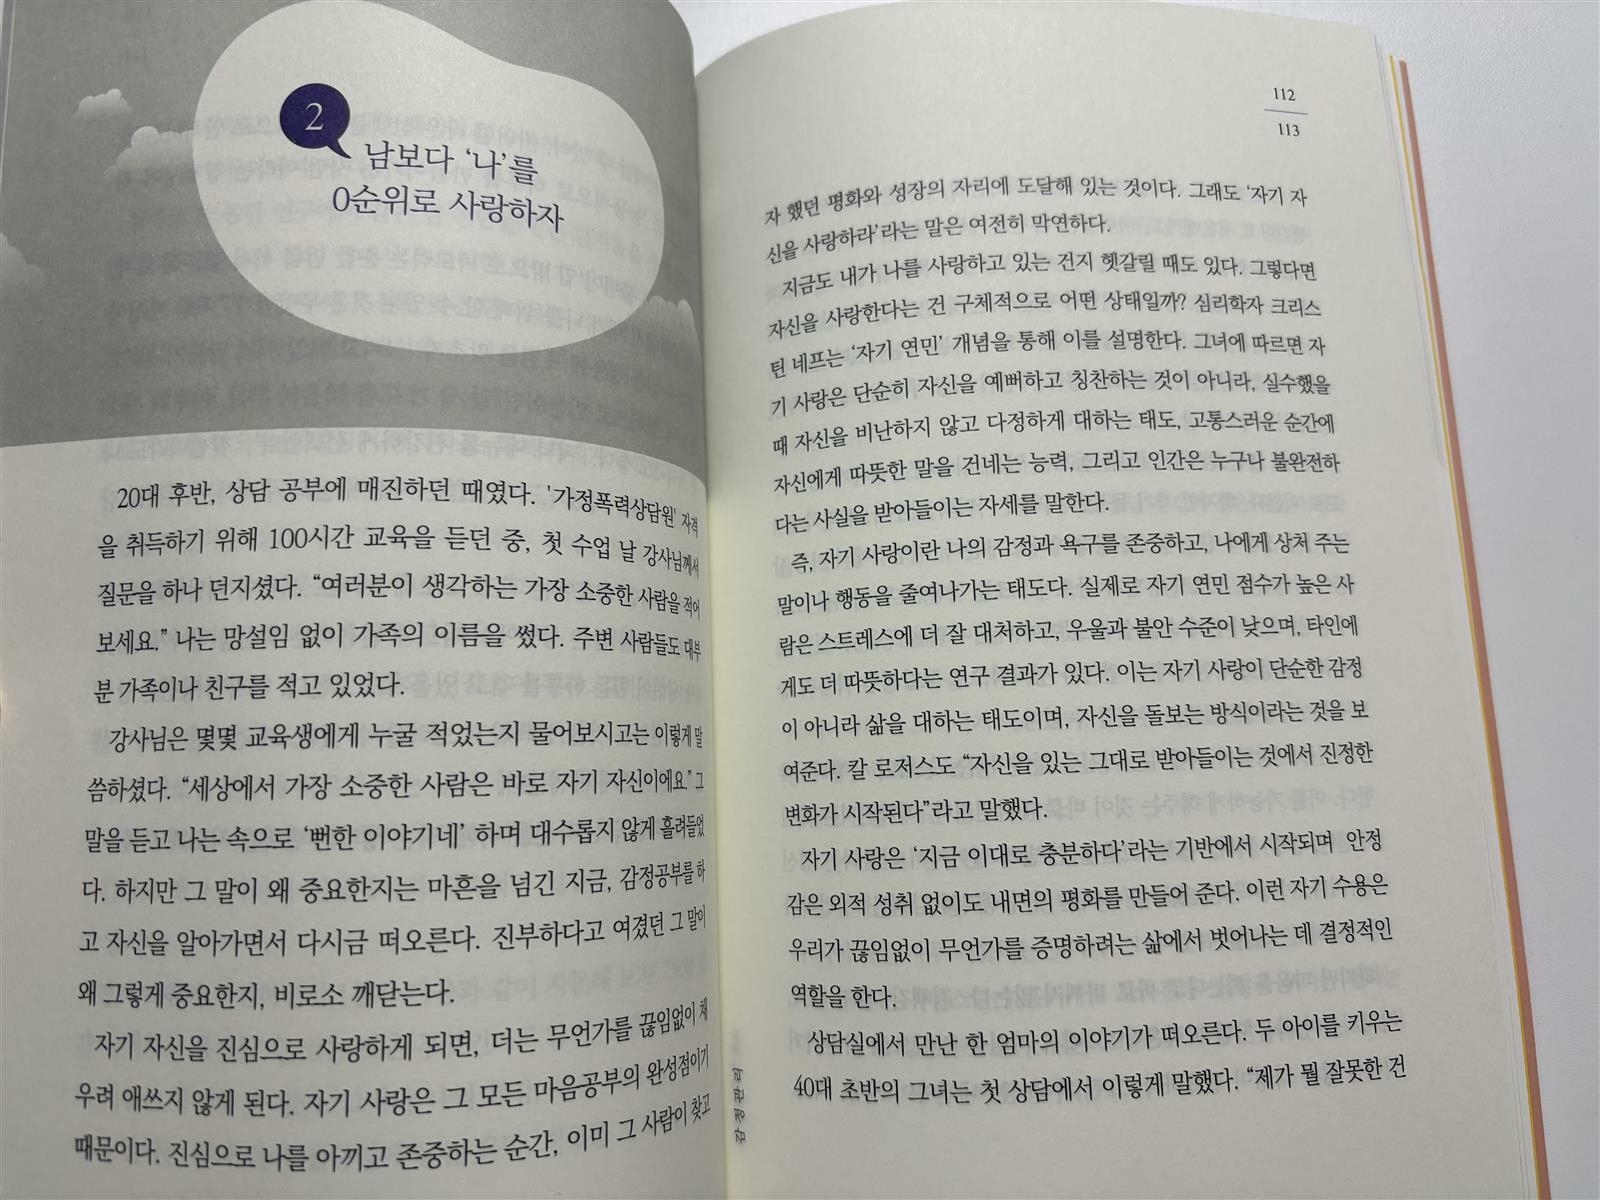 2
남보다 ‘나’를
0순위로 사랑하자
20대 후반, 상담 공부에 매진하던 때였다. '가정폭력상담원' 자격
을 취득하기 위해 100시간 교육을 듣던 중, 첫 수업 날 강사님께서
질문을 하나 던지셨다. “여러분이 생각하는 가장 소중한 사람을 적어
보세요.” 나는 망설임 없이 가족의 이름을 썼다. 주변 사람들도 대부
분 가족이나 친구를 적고 있었다.
강사님은 몇몇 교육생에게 누굴 적었는지 물어보시고는 이렇게 말
씀하셨다. “세상에서 가장 소중한 사람은 바로 자기 자신이에요.” 그
말을 듣고 나는 속으로 ‘뻔한 이야기네’ 하며 대수롭지 않게 흘려들었
다. 하지만 그 말이 왜 중요한지는 마흔을 넘긴 지금, 감정공부를 하
고 자신을 알아가면서 다시금 떠오른다. 진부하다고 여겼던 그 말이
왜 그렇게 중요한지, 비로소 깨닫는다.
자기 자신을 진심으로 사랑하게 되면, 더는 무언가를 끊임없이 채
우려 애쓰지 않게 된다. 자기 사랑은 그 모든 마음공부의 완성점이기
때문이다. 진심으로 나를 아끼고 존중하는 순간, 이미 그 사람이 찾고
112
113
자 했던 평화와 성장의 자리에 도달해 있는 것이다. 그래도 ‘자기 자
신을 사랑하라’라는 말은 여전히 막연하다.
지금도 내가 나를 사랑하고 있는 건지 헷갈릴 때도 있다. 그렇다면
자신을 사랑한다는 건 구체적으로 어떤 상태일까? 심리학자 크리스
틴 네프는 ‘자기 연민’ 개념을 통해 이를 설명한다. 그녀에 따르면 자
기 사랑은 단순히 자신을 예뻐하고 칭찬하는 것이 아니라, 실수했을
때 자신을 비난하지 않고 다정하게 대하는 태도, 고통스러운 순간에
자신에게 따뜻한 말을 건네는 능력, 그리고 인간은 누구나 불완전하
다는 사실을 받아들이는 자세를 말한다.
즉, 자기 사랑이란 나의 감정과 욕구를 존중하고, 나에게 상처 주는
말이나 행동을 줄여나가는 태도다. 실제로 자기 연민 점수가 높은 사
람은 스트레스에 더 잘 대처하고, 우울과 불안 수준이 낮으며, 타인에
게도 더 따뜻하다는 연구 결과가 있다. 이는 자기 사랑이 단순한 감정
이 아니라 삶을 대하는 태도이며, 자신을 돌보는 방식이라는 것을 보
여준다. 칼 로저스도 “자신을 있는 그대로 받아들이는 것에서 진정한
변화가 시작된다”라고 말했다.
자기 사랑은 ‘지금 이대로 충분하다’라는 기반에서 시작되며 안정
감은 외적 성취 없이도 내면의 평화를 만들어 준다. 이런 자기 수용은
우리가 끊임없이 무언가를 증명하려는 삶에서 벗어나는 데 결정적인
역할을 한다.
상담실에서 만난 한 엄마의 이야기가 떠오른다. 두 아이를 키우는
40대 초반의 그녀는 첫 상담에서 이렇게 말했다. “제가 뭘 잘못한 건
감정관리